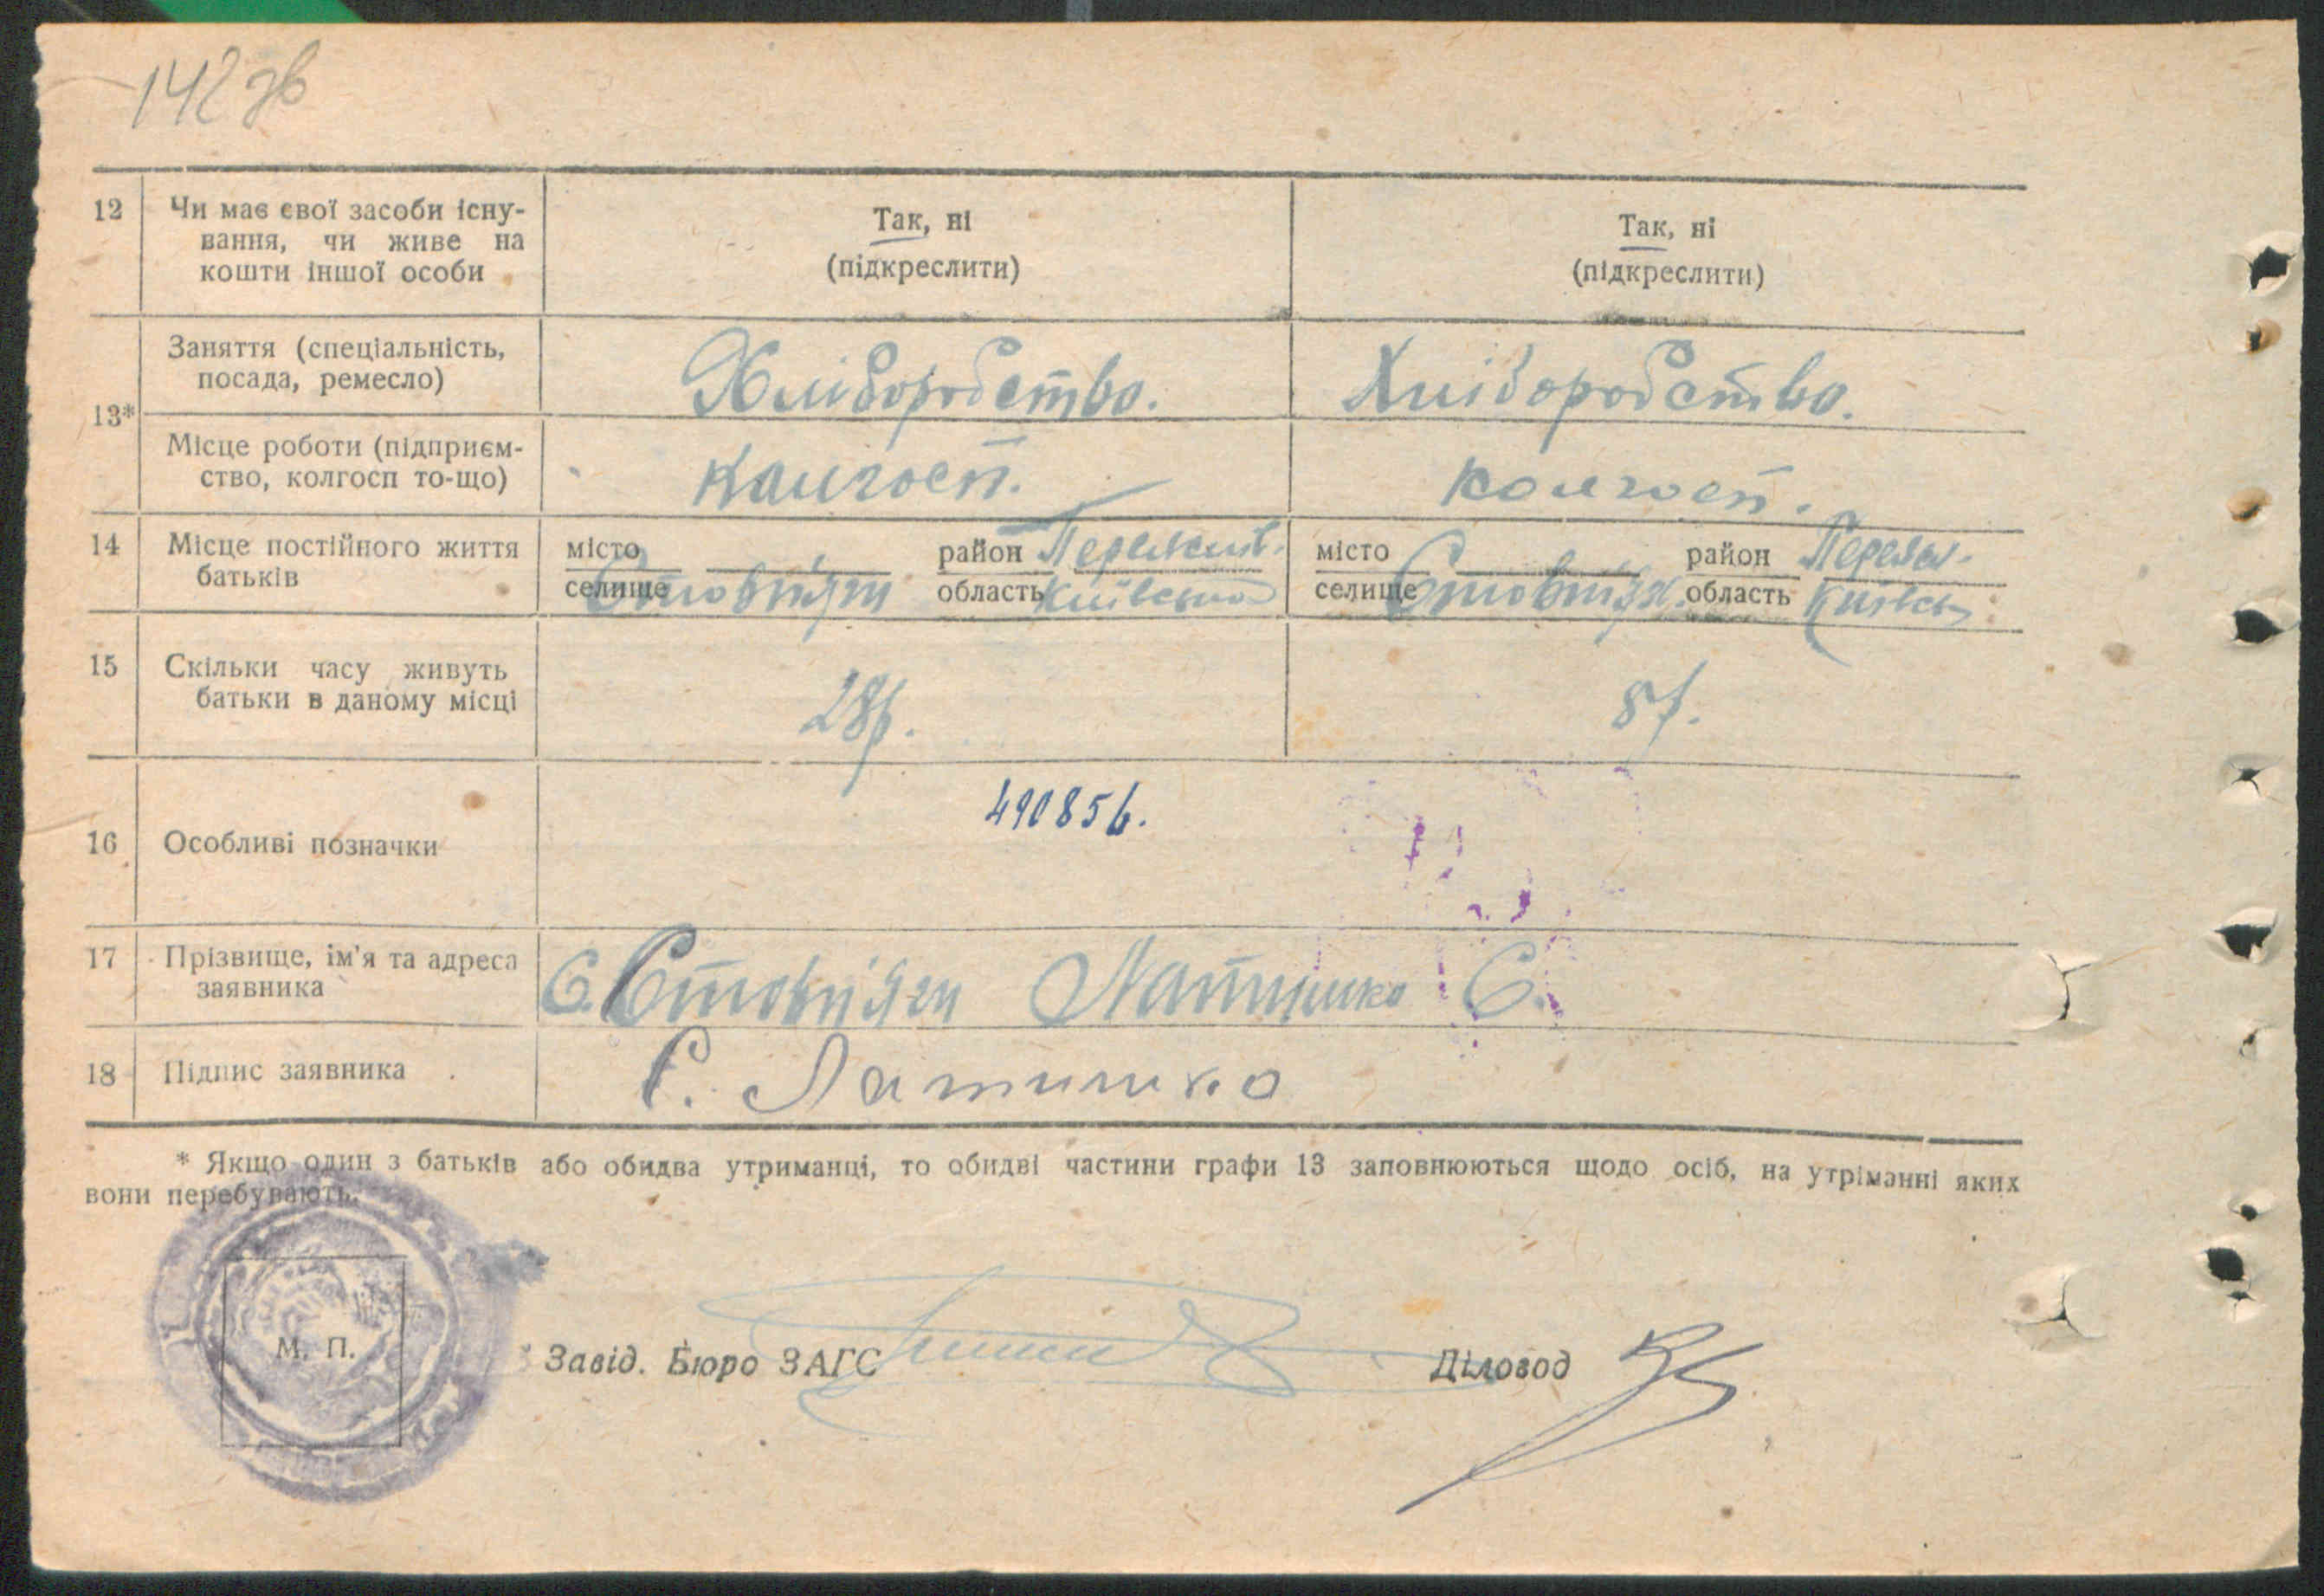 142 зв
12 Чи має свої засоби існу-
вання, чи живе на
кошти іншої особи
Так, ні
(підкреслити)
Так, ні
(підкреслити)
13*
Заняття (спеціальність,
посада, ремесло)
Хліборобство. Хліборобство.
Місце роботи (підприєм-
ство, колгосп то-що)
Колгосп. Колгосп.
14 Місце постійного життя
батьків
місто район
селище Стовп'яги область Київської
місто район Переял.
селище Стовп'яги область Київськ
15 Скільки часу живуть
батьки в даному місці
28р. 8р.
16 Особливі позначки
490856.
17 Прізвище, ім'я та адреса
заявника
С. Стовп'яги Латишко С.
18 Підпис заявника
С. Латишко
* Якщо один з батьків або обидва утриманці, то обидві частини графи 13 заповнюються щодо осіб, на утріманні яких
вони перебувають.
М. П.
Завід. Бюро ЗАГС Діловод